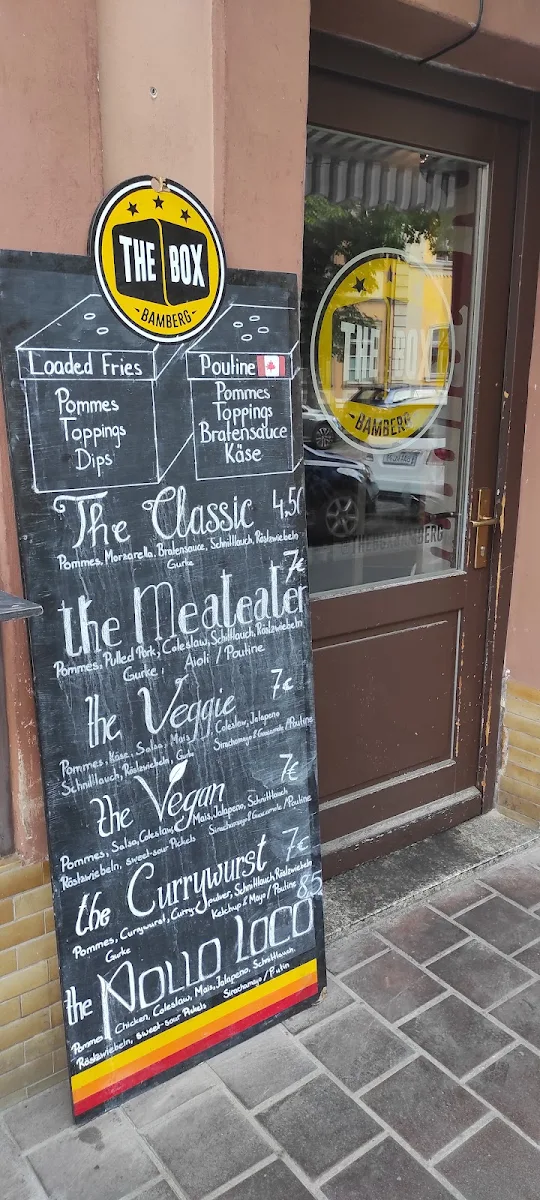 THE BOX
-BAMBERG-
Loaded Fries
Pommes
Toppings
Dips
Pouline
Pommes
Toppings
Bratensauce
Käse
The Classic 4,50
Pommes, Mozzarella, Bratensauce, Schnittlauch, Röstzwiebeln
Gurke
7€
the Meateater
Pommes, Pulled Pork, Coleslaw, Schnittlauch, Röstzwiebeln
Gurke, Aioli / Poutine
7€
the Veggie
Pommes, Käse, Salsa, Mais, Coleslaw, Jalapeno
Schnittlauch, Röstzwiebeln, Gurke Sirachamayo & Guacamole / Poutine
7€
the Vegan
Pommes, Salsa, Coleslaw, Mais, Jalapeno, Schnittlauch
Röstzwiebeln, sweet-sour Pickels Sirachamayo & Guacamole / Poutine
7€
the Currywurst
Pommes, Currywurst, Curry-pulver, Schnittlauch, Röstzwiebeln
Gurke Ketchup & Mayo / Poutine
8,5
the POLLO LOCO
Pommes, Chicken, Coleslaw, Mais, Jalapeno, Schnittlauch
Röstzwiebeln, sweet-sour Pickels Sirachamayo / Putin
THE BOX
-BAMBERG